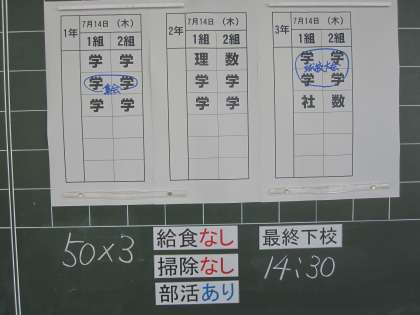 1年 7月14日 (木)
1組 2組
学 学
学 学
集会
学 学
2年 7月14日 (木)
1組 2組
理 数
学 学
学 学
3年 7月14日 (木)
1組 2組
学 学
学 学
社 数
50×3
給食なし
掃除なし
部活あり
最終下校
14:30